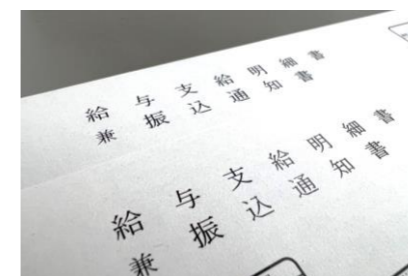 給与支給明細書
兼振込通知書
給与支給明細書
兼振込通知書